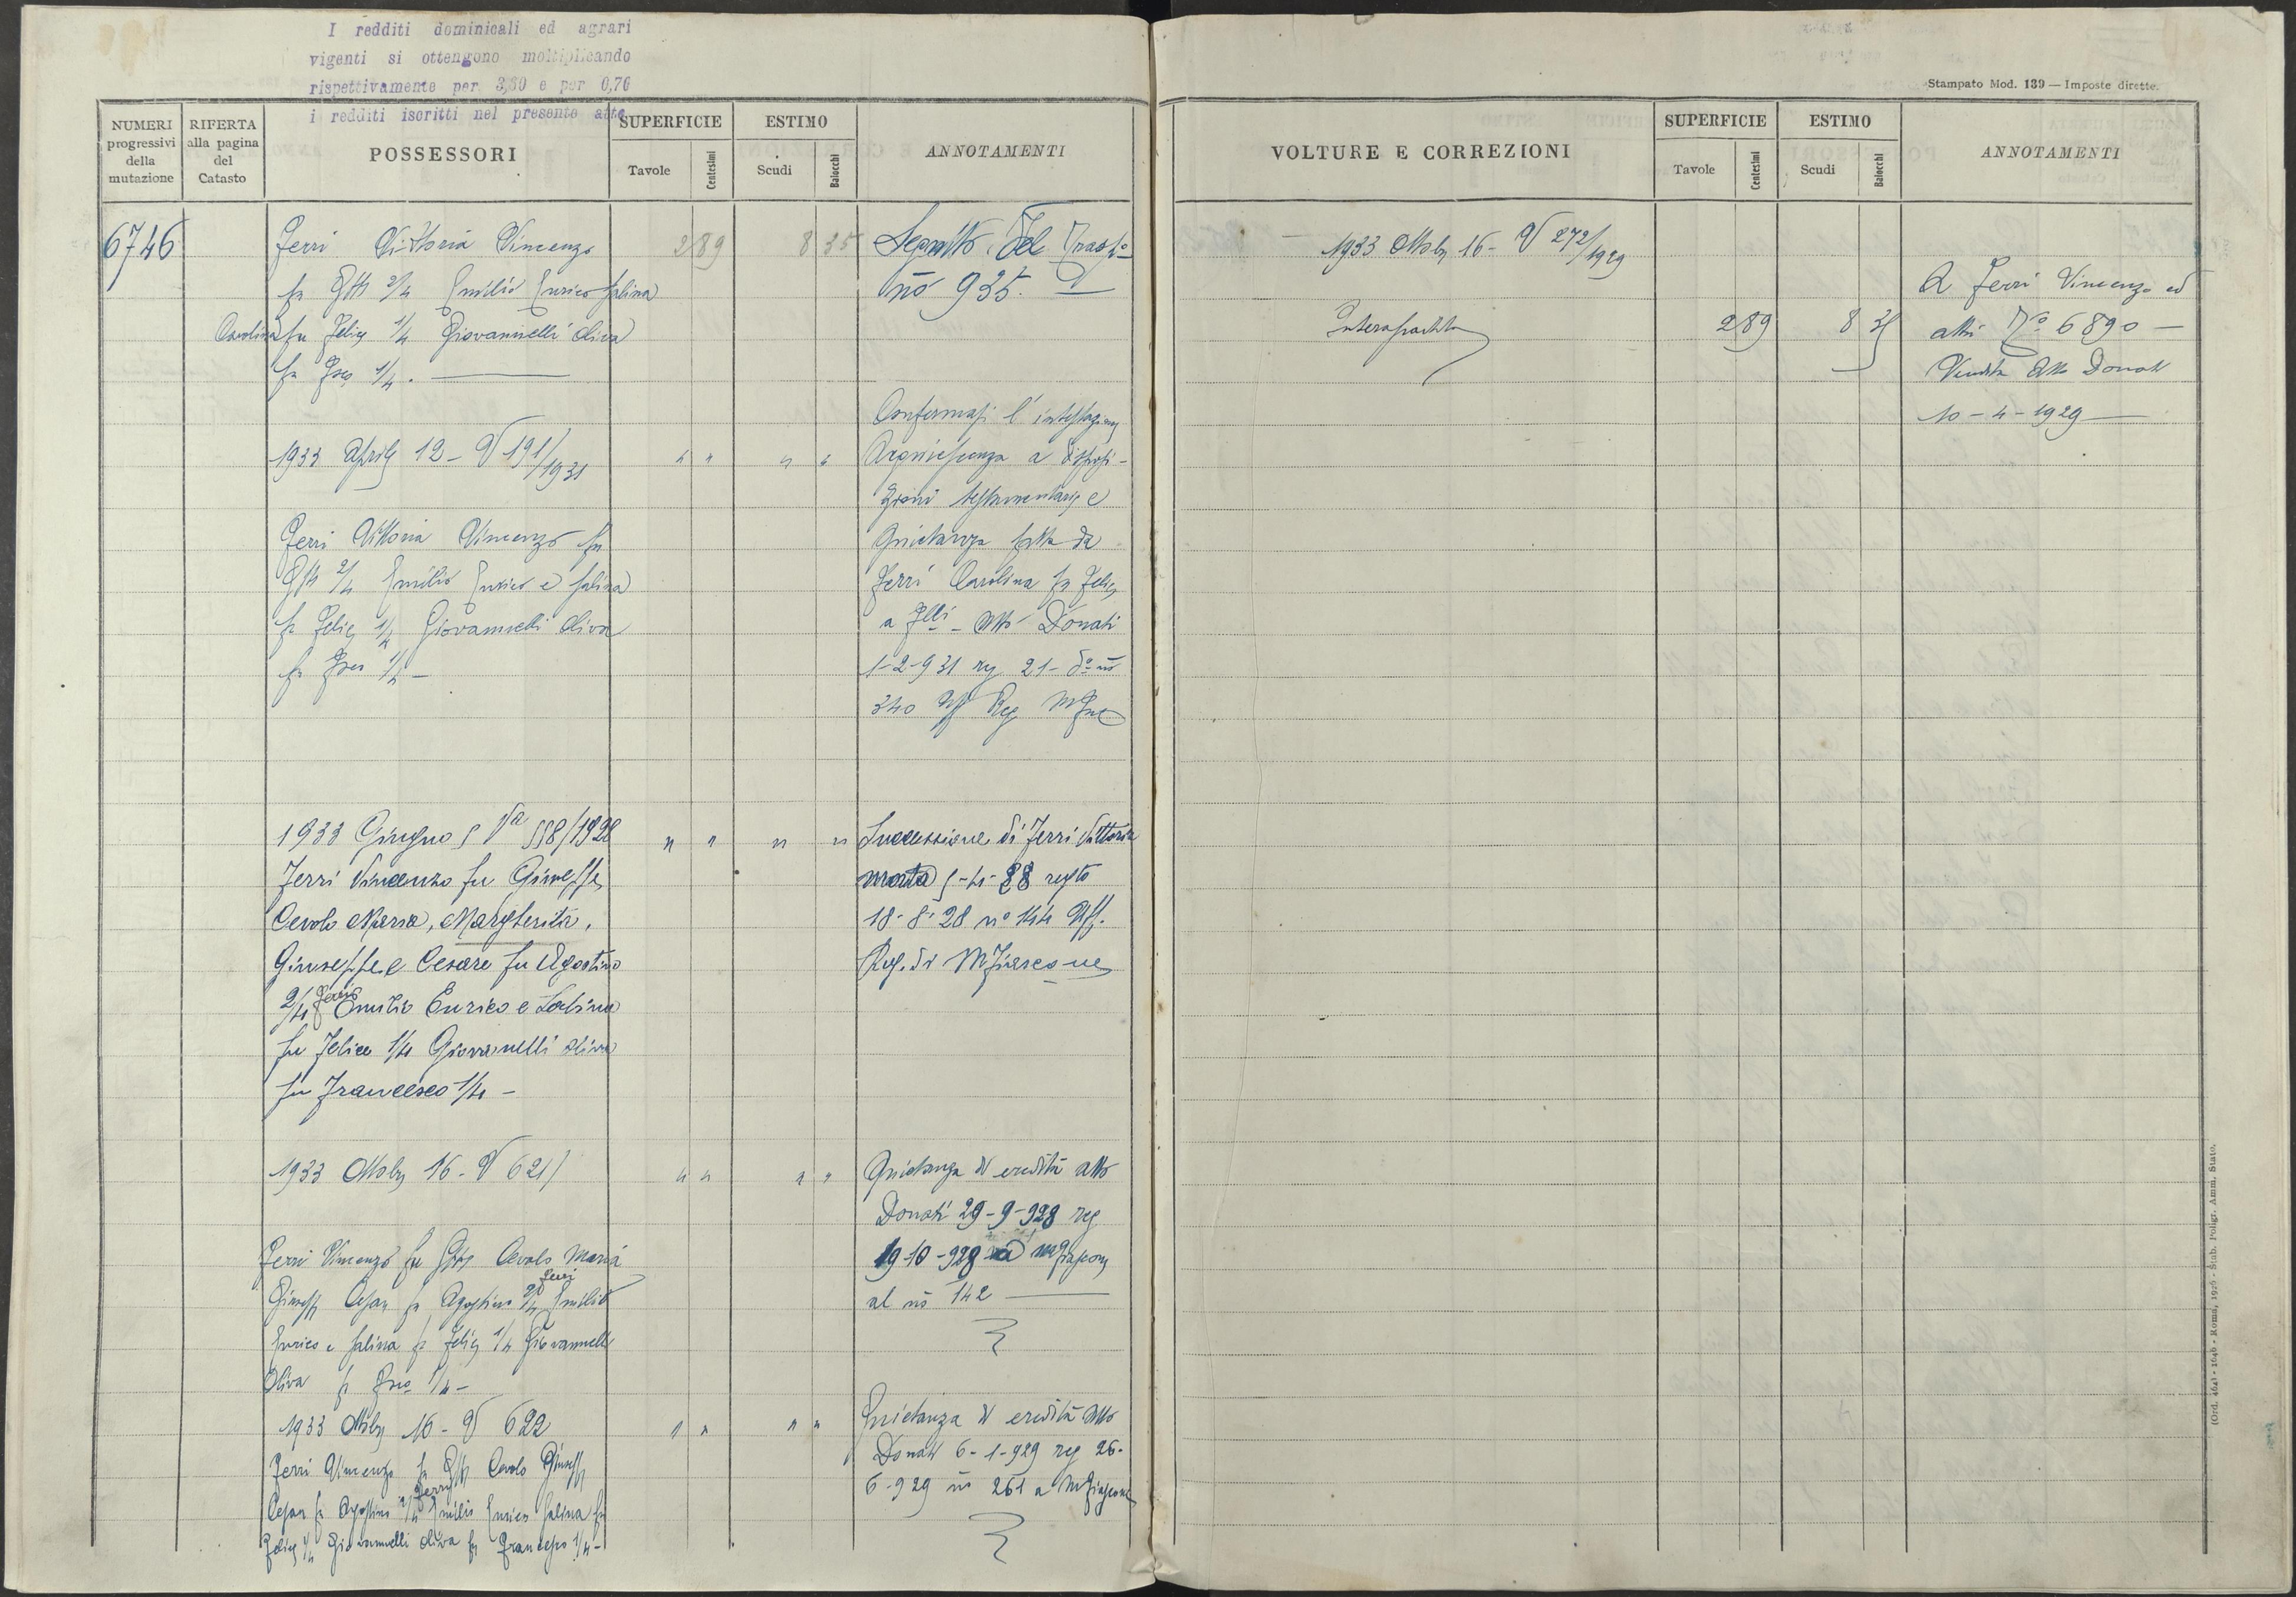 I redditi dominicali ed agrari
vigenti si ottengono moltiplicando
rispettivamente per 3,60 e per 0,76
i redditi iscritti nel presente atto.
NUMERI progressivi della mutazione
RIFERTA alla pagina del Catasto
POSSESSORI
SUPERFICIE
Tavole
Centesimi
ESTIMO
Scudi
Baiocchi
ANNOTAMENTI
6746
Ferri Vittoria Vincenzo
fu Gius 2/4 Emilio Enrico Salina
Carolina fu Felice 1/4 Giovannelli Oliva
fu Fco 1/4.
2 89
8 35
no 935.
1933 Aprile 12 - V 191/1931
" "
" "
Confermasi l'intestazione
Acquiescenza a disposi-
zioni testamentarie e
Quietanza fatta da
Ferri Carolina fu Felice
a Flli - Atto Donati
1-2-931 reg 21- do no
340 Uff Reg
Ferri Vittoria Vincenzo fu
2/4 Emilio Enrico e Salina
fu Felice 1/4 Giovannelli Oliva
fu 1/4 -
1933 Giugno 5 Va 558/1928
" "
" "
Ferri Vincenzo fu Giuseppe
Cevolo Maria, Margherita,
Giuseppe e Cesare fu Agostino
2/4 Ferri Emilio Enrico e Salina
fu Felice 1/4 Giovanelli Oliva
fu Francesco 1/4 -
Successione di Ferri Vittoria
morta 5-4-28 regto
18-8-28 no 144 Uff.
Reg. di MFiascone
1933 Ottobre 16 - V 621
" "
" "
Quietanza di eredità atto
Donati 29-9-928 reg
19-10-928 a MFiascone
al no 142
Ferri Vincenzo fu Cevolo Maria
Giuseppe Cesare fu Agostino 2/4 Ferri Emilio
Enrico e Salina fu Felice 1/4 Giovannelli
Oliva fu 1/4 -
1933 Ottobre 16 - V 622
" "
" "
Quietanza di eredità Atto
Donati 6-1-929 reg 26-
6-929 no 261 a MFiascone
Ferri Vincenzo fu Cevolo Giuseppe
Cesare fu Agostino 2/4 Ferri Emilio Enrico Salina fu
Felice 1/4 Giovannelli Oliva fu Francesco 1/4 -
Stampato Mod. 139 — Imposte dirette.
VOLTURE E CORREZIONI
SUPERFICIE
Tavole
Centesimi
ESTIMO
Scudi
Baiocchi
ANNOTAMENTI
1933 Ottobre 16 - V 272/1929
Intera partita
2 89
8 35
A Ferri Vincenzo ed
altri No 6890 —
Vendita Atto Donati
10-4-1929
(Ord. 464) - 1646 - Roma, 1926 - Stab. Poligr. Amm. Stato.